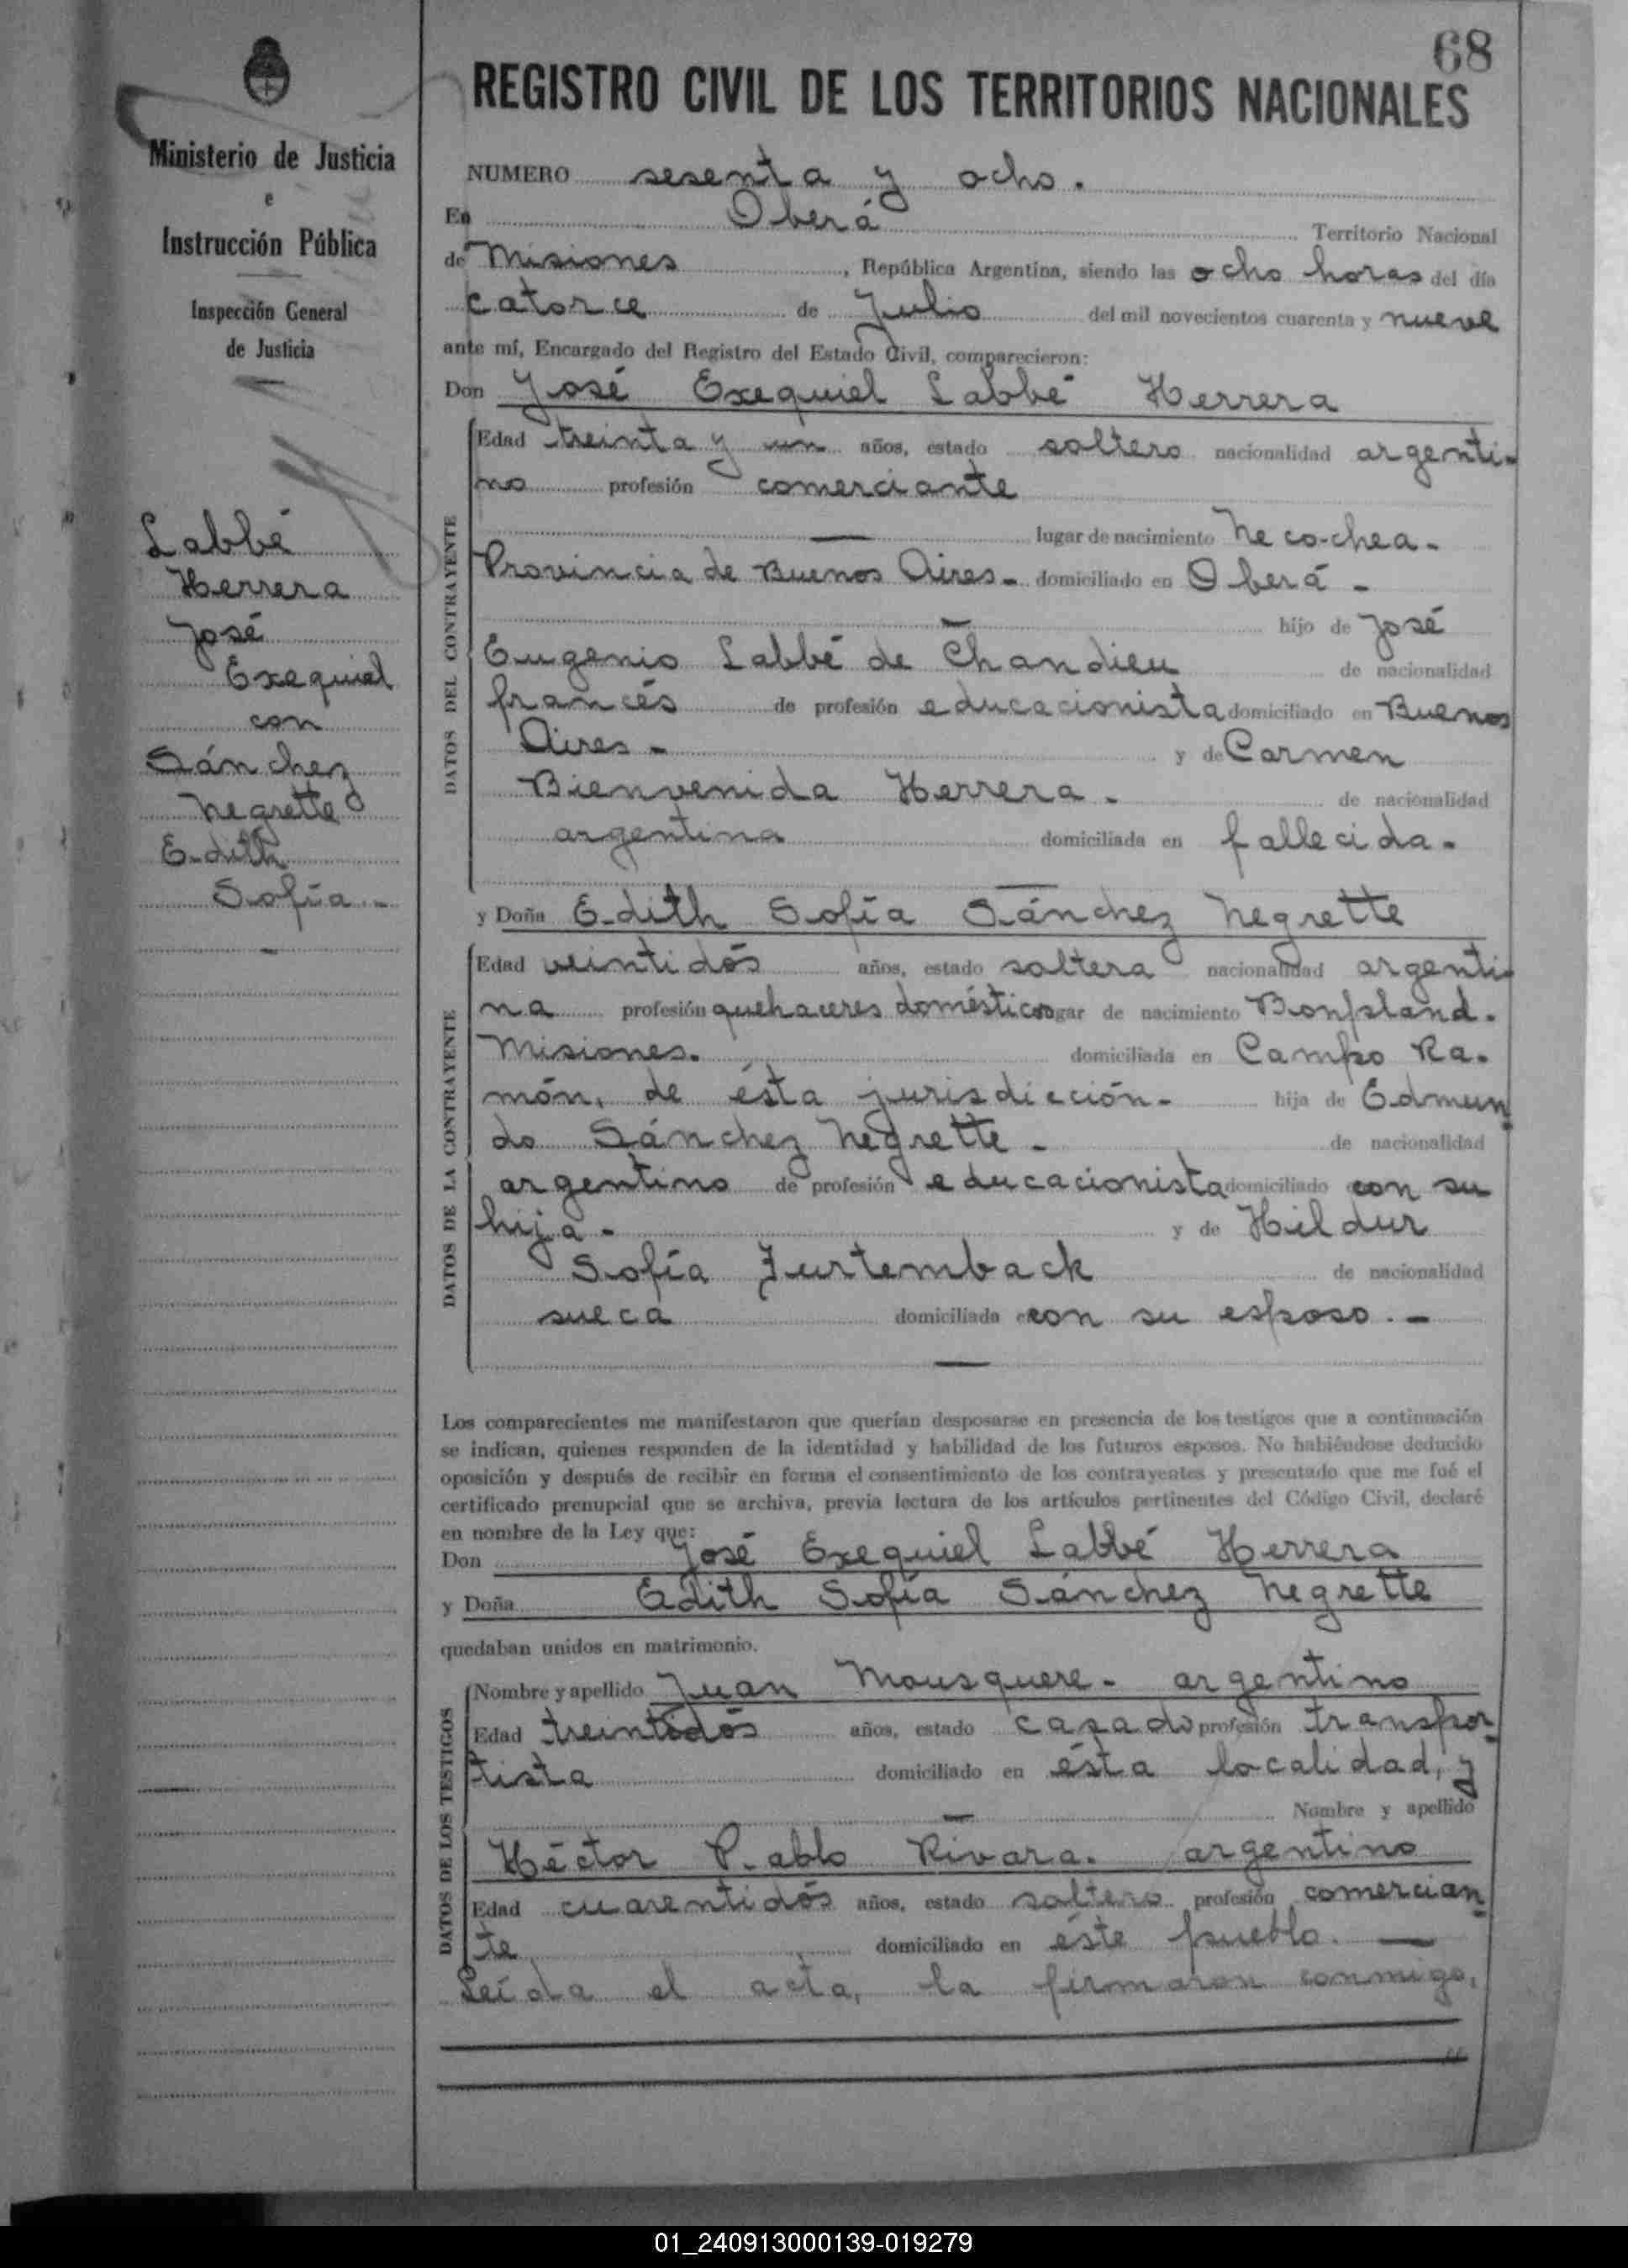 68
REGISTRO CIVIL DE LOS TERRITORIOS NACIONALES
Ministerio de Justicia
e
Instrucción Pública
Inspección General
de Justicia
Labbé
Herrera
José
Exequiel
con
Sánchez
Negrette
Edith
Sofía.-
NUMERO sesenta y ocho.
En Oberá Territorio Nacional
de Misiones, República Argentina, siendo las ocho horas del día
catorce de Julio del mil novecientos cuarenta y nueve
ante mí, Encargado del Registro del Estado Civil, comparecieron:
Don José Exequiel Labbé Herrera
DATOS DEL CONTRAYENTE
Edad treinta y un años, estado soltero nacionalidad argenti-
no profesión comerciante
lugar de nacimiento Necochea-
Provincia de Buenos Aires- domiciliado en Oberá-
hijo de José
Eugenio Labbé de Chandieu de nacionalidad
francés de profesión educacionista domiciliado en Buenos
Aires- y de Carmen
Bienvenida Herrera- de nacionalidad
argentina domiciliada en fallecida-
y Doña Edith Sofía Sánchez Negrette
DATOS DE LA CONTRAYENTE
Edad veintidós años, estado soltera nacionalidad argenti-
na profesión quehaceres domésticos lugar de nacimiento Bonpland.
Misiones. domiciliada en Campo Ra-
món, de ésta jurisdicción- hija de Edmun
do Sánchez Negrette- de nacionalidad
argentino de profesión educacionista domiciliado con su
hija- y de Hildur
Sofía Furtemback de nacionalidad
sueca domiciliada en con su esposo.-
Los comparecientes me manifestaron que querían desposarse en presencia de los testigos que a continuación
se indican, quienes responden de la identidad y habilidad de los futuros esposos. No habiéndose deducido
oposición y después de recibir en forma el consentimiento de los contrayentes y presentado que me fué el
certificado prenupcial que se archiva, previa lectura de los artículos pertinentes del Código Civil, declaré
en nombre de la Ley que:
Don José Exequiel Labbé Herrera
y Doña Edith Sofía Sánchez Negrette
quedaban unidos en matrimonio.
DATOS DE LOS TESTIGOS
Nombre y apellido Juan Mousquere- argentino
Edad treintidós años, estado casado profesión transpor
tista domiciliado en ésta localidad, y
Nombre y apellido
Héctor Pablo Rivara. argentino
Edad cuarentidós años, estado soltero profesión comercian
te domiciliado en éste pueblo.-
Leída el acta, la firmaron conmigo,
01_240913000139-019279